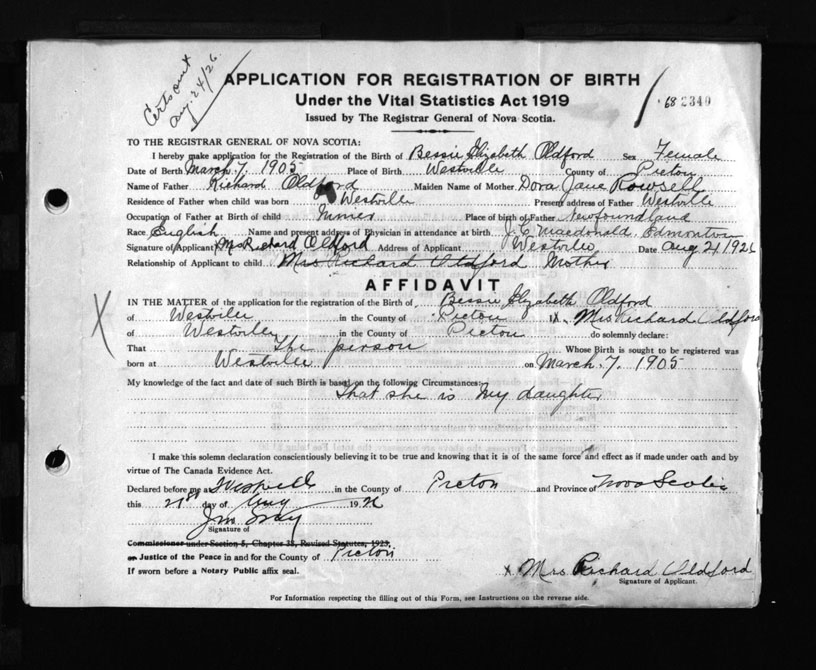 Certs out
Aug. 24/26.
APPLICATION FOR REGISTRATION OF BIRTH
68 2340
Under the Vital Statistics Act 1919
Issued by The Registrar General of Nova Scotia.
TO THE REGISTRAR GENERAL OF NOVA SCOTIA:
I hereby make application for the Registration of the Birth of Bessie Elizabeth Oldford Sex Female
Date of Berth March 7, 1905 Place of Birth Westville County of Picton
Name of Father Richard Oldford Maiden Name of Mother Dora Jane Rowsell
Residence of Father when child was born Westville Present address of Father Westville
Occupation of Father at Birth of child Miner Place of birth of Father Newfoundland
Race English Name and present address of Physician in attendance at birth J. C. Macdonald. Edmonton
Signature of Applicant Mrs Richard Oldford Address of Applicant Westville Date Aug 21 1926
Relationship of Applicant to child Mrs Richard Oldford Mother
AFFIDAVIT
IN THE MATTER of the application for the registration of the Birth of Bessie Elizabeth Oldford
of Westville in the County of Picton I X Mrs Richard Oldford
of Westville in the County of Picton do solemnly declare:
That The person Whose Birth is sought to be registered was
born at Westville on March. 7. 1905
My knowledge of the fact and date of such Birth is based on the following Circumstances:
That she is My daughter
I make this solemn declaration conscientiously believing it to be true and knowing that it is of the same force and effect as if made under oath and by
virtue of The Canada Evidence Act.
Declared before me at Westville in the County of Picton and Province of Nova Scotia
this 21st day of Aug 1926
Signature of
Commissioner under Section 5, Chapter 38, Revised Statutes, 1923,
or Justice of the Peace in and for the County of Picton
If sworn before a Notary Public affix seal.
X Mrs Richard Oldford
Signature of Applicant.
For Information respecting the filling out of this Form, see Instructions on the reverse side.